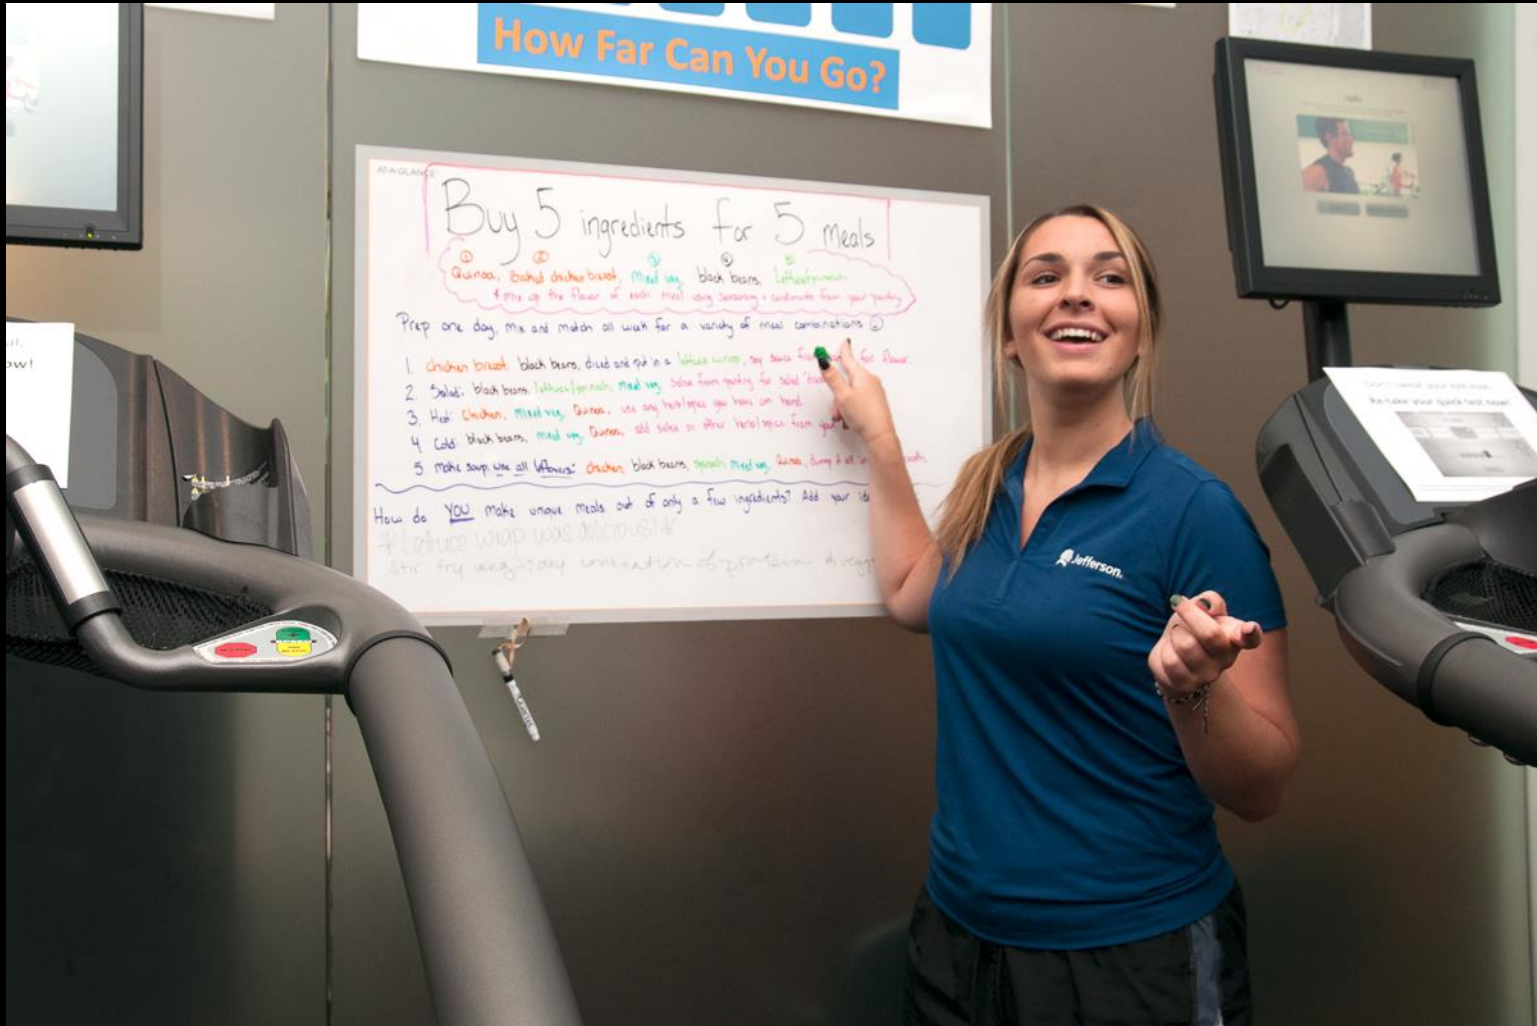 How Far Can You Go?
AT-A-GLANCE
Buy 5 ingredients for 5 meals
1 2 3 4 5
Quinoa, Baked chicken breast, Mixed veg, black beans, Lettuce/spinach
* Mix up the flavor of each meal using seasoning + condiments from your pantry
Prep one day, mix and match all week for a variety of meal combinations
1. Chicken breast, black beans, diced and put in a lettuce wrap, soy sauce for flavor.
2. Salad: black beans, lettuce/spinach, mixed veg, salsa from pantry for salad
3. Hot: Chicken, Mixed veg, Quinoa, use any herb/spice you have on hand
4 Cold: black beans, mixed veg, Quinoa, add salsa or other herb/spice from your
5 Make soup, use all leftovers: chicken, black beans, spinach, mixed veg, Quinoa, dump it all in
How do YOU make unique meals out of only a few ingredients? Add your
* Lettuce wrap was delicious! *
Stir fry using any combination of protein
Jefferson
ow!
Re-take your quick test now!